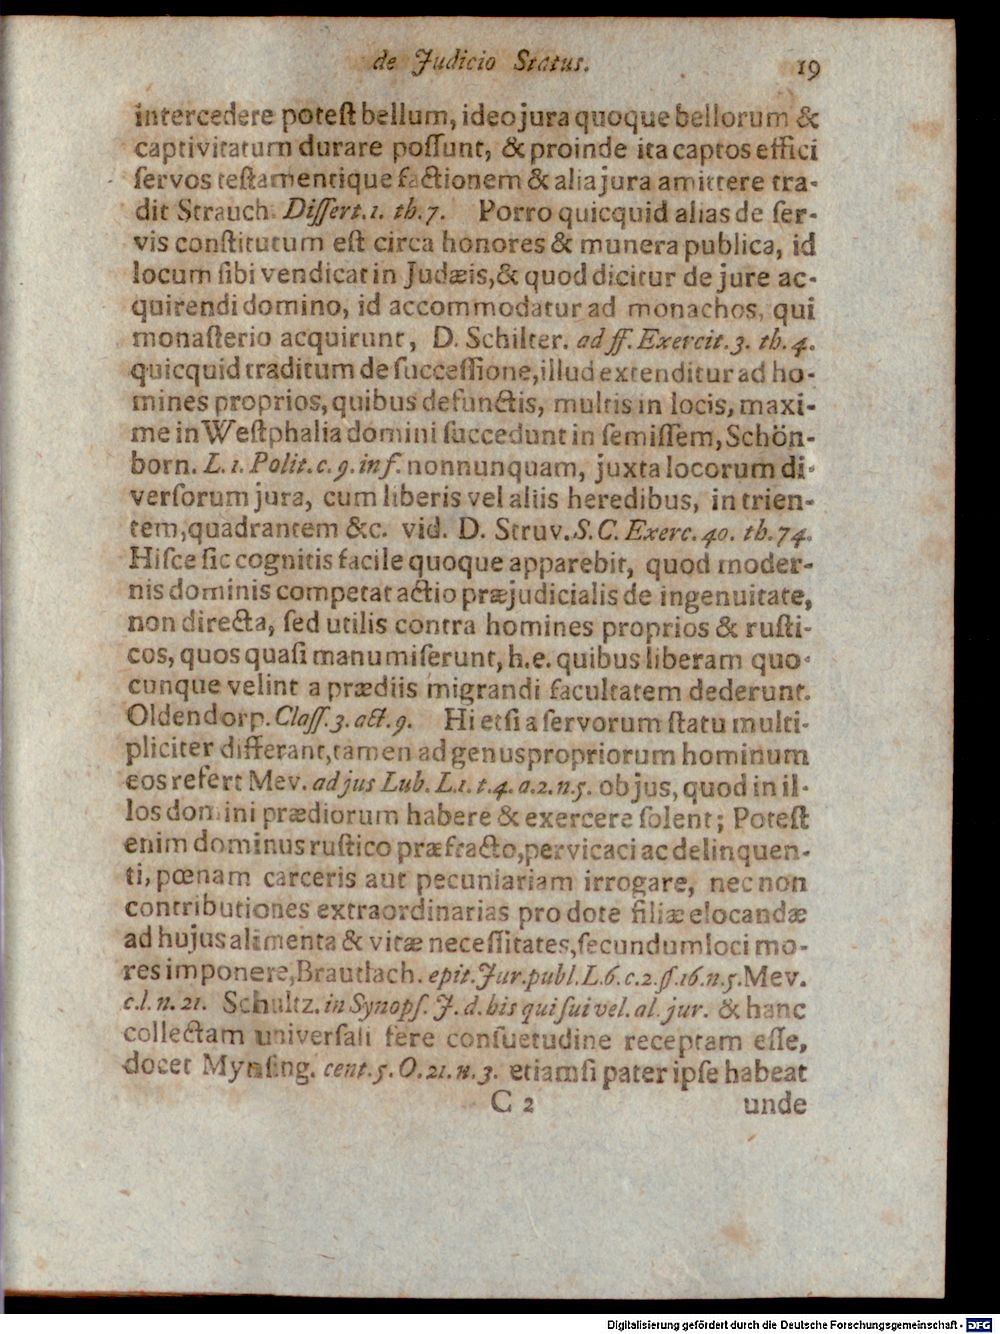 de Judicio Status. 19
intercedere poteſt bellum, ideo jura quoque bellorum &
captivitatum durare poſſunt, & proinde ita captos effici
ſervos teſtamentique factionem & alia jura amittere tra-
dit Strauch. Diſſert. 1. th. 7. Porro quicquid alias de ſer-
vis conſtitutum eſt circa honores & munera publica, id
locum ſibi vendicat in Judæis, & quod dicitur de jure ac-
quirendi domino, id accommodatur ad monachos, qui
monaſterio acquirunt, D. Schilter. ad ff. Exercit. 3. th. 4.
quicquid traditum de ſucceſſione, illud extenditur ad ho-
mines proprios, quibus defunctis, multis in locis, maxi-
me in Weſtphalia domini ſuccedunt in ſemiſſem, Schön-
born. L. 1. Polit. c. 9. inf. nonnunquam, juxta locorum di-
verſorum jura, cum liberis vel aliis heredibus, in trien-
tem, quadrantem &c. vid. D. Struv. S. C. Exerc. 40. th. 74.
Hiſce ſic cognitis facile quoque apparebit, quod moder-
nis dominis competat actio præjudicialis de ingenuitate,
non directa, ſed utilis contra homines proprios & ruſti-
cos, quos quaſi manumiſerunt, h. e. quibus liberam quo-
cunque velint a prædiis migrandi facultatem dederunt.
Oldendorp. Claſſ. 3. act. 9. Hi etſi a ſervorum ſtatu multi-
pliciter differant, tamen ad genus propriorum hominum
eos refert Mev. ad jus Lub. L. 1. t. 4. a. 2. n. 5. ob jus, quod in il-
los domini prædiorum habere & exercere ſolent; Poteſt
enim dominus ruſtico præfracto, pervicaci ac delinquen-
ti, pœnam carceris aut pecuniariam irrogare, nec non
contributiones extraordinarias pro dote filiæ elocandæ
ad hujus alimenta & vitæ neceſſitates, ſecundum loci mo-
res imponere, Brautlach. epit. Jur. publ. L. 6. c. 2. §. 16. n. 5. Mev.
c. l. n. 21. Schultz. in Synopſ. J. d. his qui ſui vel. al. jur. & hanc
collectam univerſali fere conſuetudine receptam eſſe,
docet Mynſing. cent. 5. O. 21. n. 3. etiamſi pater ipſe habeat
C 2 unde
Digitalisierung gefördert durch die Deutsche Forschungsgemeinschaft - DFG